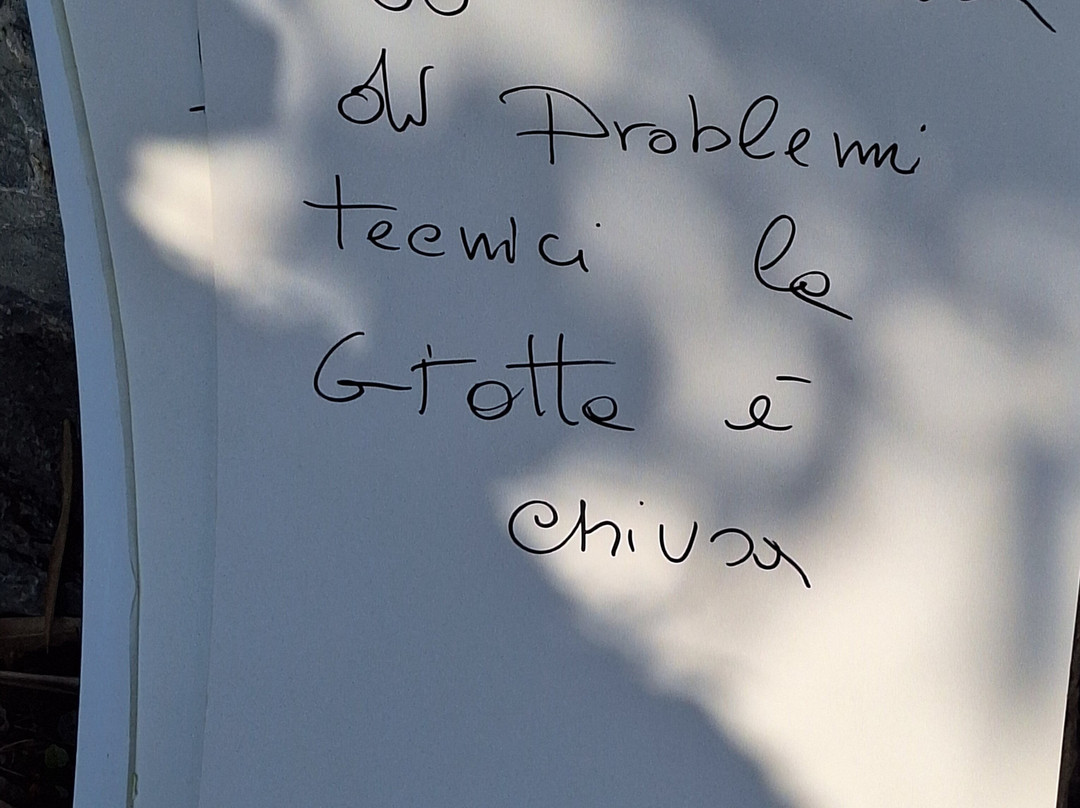 di Problemi
tecnici la
Grotta è
chiusa